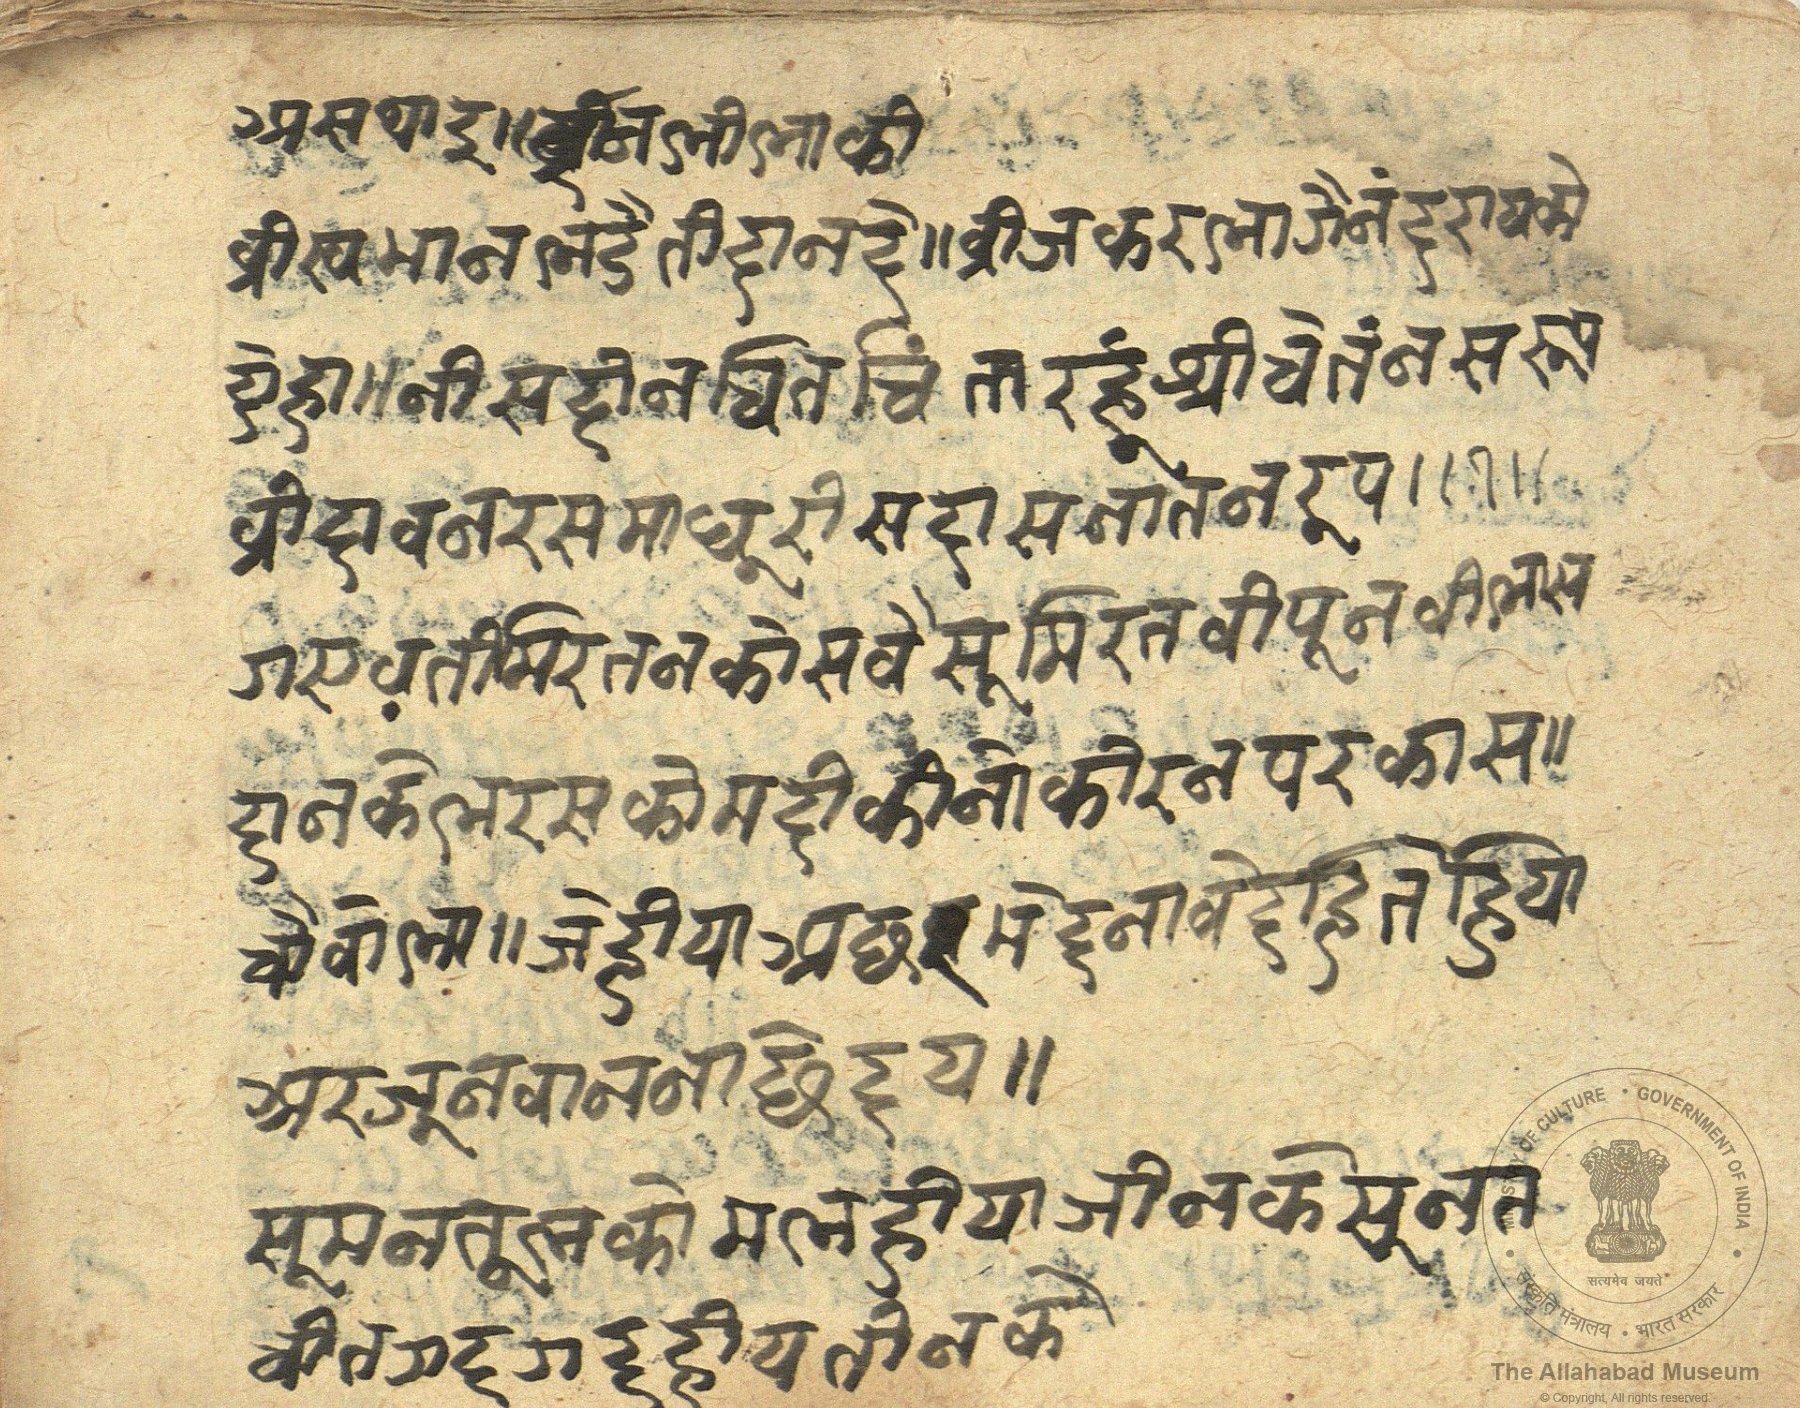 अस थाइ॥ दानलीला की
व्रीखभानलडैतीदानदे॥ व्रीजकरलागैनंदरायको
दोहा॥ नीसदीनचितचिंतारहूं श्रीचेतंनसरूप
व्रीदावनरसमाधूरी सदासनातनरूप॥१॥
गएवतीमिरतनकोसवेसूमिरतवीपूनवीलास
दानकेलरसकोमदीकीनोकीरनपरकास॥
चौवोला॥ जेहीयाअछरमेदनावेदहितेहिया
अरजूनवाननाछेदय॥
सूमनतूलकोमलहीयाजीनकेसूनत
वीतगदगदहीयतीनके
MINISTRY OF CULTURE • GOVERNMENT OF INDIA
सत्यमेव जयते
संस्कृति मंत्रालय • भारत सरकार
The Allahabad Museum
© Copyright, All rights reserved.